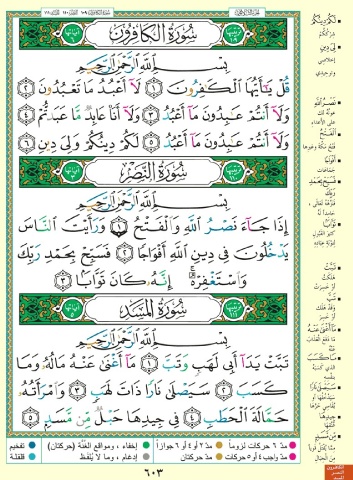 سُورَةُ الكَافِرُونَ
بِسْمِ اللَّهِ الرَّحْمَٰنِ الرَّحِيمِ
قُلْ يَٰٓأَيُّهَا ٱلْكَٰفِرُونَ ١ لَآ أَعْبُدُ مَا تَعْبُدُونَ ٢
وَلَآ أَنتُمْ عَٰبِدُونَ مَآ أَعْبُدُ ٣ وَلَآ أَنَا۠ عَابِدٌ مَّا عَبَدتُّمْ ٤
وَلَآ أَنتُمْ عَٰبِدُونَ مَآ أَعْبُدُ ٥ لَكُمْ دِينُكُمْ وَلِىَ دِينِ ٦
سُورَةُ النَّصْرِ
بِسْمِ اللَّهِ الرَّحْمَٰنِ الرَّحِيمِ
إِذَا جَآءَ نَصْرُ ٱللَّهِ وَٱلْفَتْحُ ١ وَرَأَيْتَ ٱلنَّاسَ
يَدْخُلُونَ فِى دِينِ ٱللَّهِ أَفْوَاجًا ٢ فَسَبِّحْ بِحَمْدِ رَبِّكَ
وَٱسْتَغْفِرْهُ ۚ إِنَّهُۥ كَانَ تَوَّابًۢا ٣
سُورَةُ المَسَدِ
بِسْمِ اللَّهِ الرَّحْمَٰنِ الرَّحِيمِ
تَبَّتْ يَدَآ أَبِى لَهَبٍ وَتَبَّ ١ مَآ أَغْنَىٰ عَنْهُ مَالُهُۥ وَمَا
كَسَبَ ٢ سَيَصْلَىٰ نَارًا ذَاتَ لَهَبٍ ٣ وَٱمْرَأَتُهُۥ
حَمَّالَةَ ٱلْحَطَبِ ٤ فِى جِيدِهَا حَبْلٌ مِّن مَّسَدٍۭ ٥
مدّ ٦ حركات لزوماً مدّ ٢ أو ٤ أو ٦ جوازاً إخفاء، ومواقع الغُنَّة (حركتان) تفخيم
مدّ واجب ٤ أو ٥ حركات مدّ حركتان إدغام، وما لا يُلفَظ قلقلة
٦٠٣
لَكُمْ دِينُكُمْ
شِرْكُكُمْ
لِىَ دِينِ
نَصْرُ اللهِ
الْفَتْحُ
أَفْوَاجًا
جماعات
فَسَبِّحْ بِحَمْدِ
تَوَّابًا
تَبَّتْ
مَا أَغْنَىٰ عَنْهُ
مَا كَسَبَ
سَيَصْلَىٰ نَارًا
جِيدِهَا
مِّن مَّسَدٍ
الكافرون
النصر
المسد